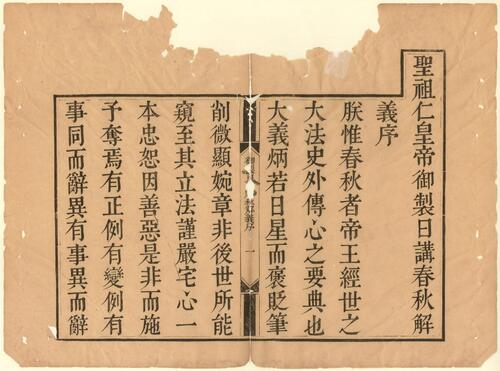 聖祖仁皇帝御製日講春秋解
義序
朕惟春秋者帝王經世之
大法史外傳心之要典也
大義炳若日星而褒貶筆
削微顯婉章非後世所能
窺至其立法謹嚴宅心一
本忠恕因善惡是非而施
予奪焉有正例有變例有
事同而辭異有事異而辭